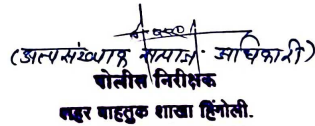 (अल्पसंख्याक समाज. अधिकारी)
पोलीस निरीक्षक
शहर वाहतुक शाखा हिंगोली.